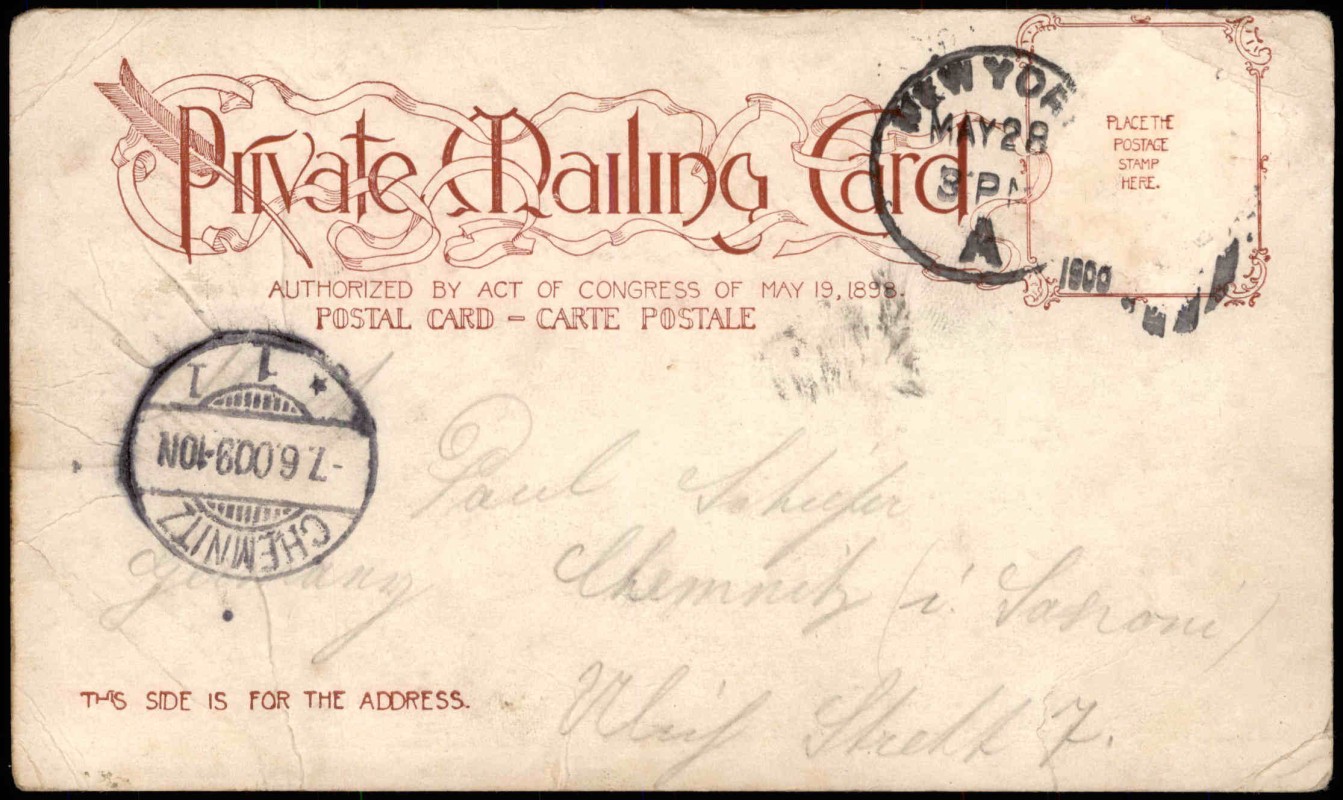 Private Mailing Card
AUTHORIZED BY ACT OF CONGRESS OF MAY 19, 1898.
POSTAL CARD – CARTE POSTALE
PLACE THE
POSTAGE
STAMP
HERE.
NEW YOR
MAY 28
3 P
A
1900
CHEMNITZ
-7.6.00.9-10N
1
1
Paul
Germany Chemnitz (i.
7.
THIS SIDE IS FOR THE ADDRESS.